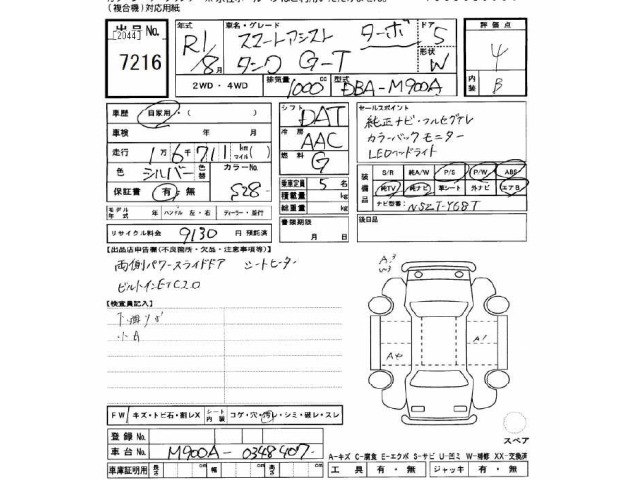 (複合機)対応用紙
出品No.
[2044]
7216
年式
R1/8月
車名・グレード
スマートアシスト ターボ
タンク G-T
ドア 5
形状 W
2WD ・ 4WD
排気量 1000 cc
型式 DBA-M900A
評価点
4
内装 B
車歴 自家用・( )
車検 年 月
走行 1万6千711 km マイル( )
色 シルバー 色替 カラーNo. S28
保証書 有・無
モデル年式 年 ハンドル 左・右 ディーラー・並行
リサイクル料金 9130 円 預託済
シフト DAT
冷房 AAC
燃料 G
乗車定員 5 名
積載量 kg
総重量 kg
書類期限
月 日
セールスポイント
純正ナビ・フルセグTV
カラーバックモニター
LEDヘッドライト
装備品
S/R 純A/W P/S P/W ABS
純TV 純ナビ 革シート 外ナビ エアB
ナビ型番( NSZT-Y68T
後日品
【出品店申告欄(不良箇所・欠品・注意事項等)】
両側パワースライドドア シートヒーター
ビルトインETC2.0
【検査員記入】
下廻サビ
小A
A3
W3
A1
FW キズ・トビ石・割レX シート内装 コゲ・穴・汚レ・シミ・破レ・スレ
スペア
登録No.
車台No. M900A-0348407-
A-キズ C-腐食 E-エクボ S-サビ U-凹ミ W-補修 XX-交換済
車庫証明用 長さ cm 幅 cm 高さ cm
工具 有・無 ジャッキ 有・無